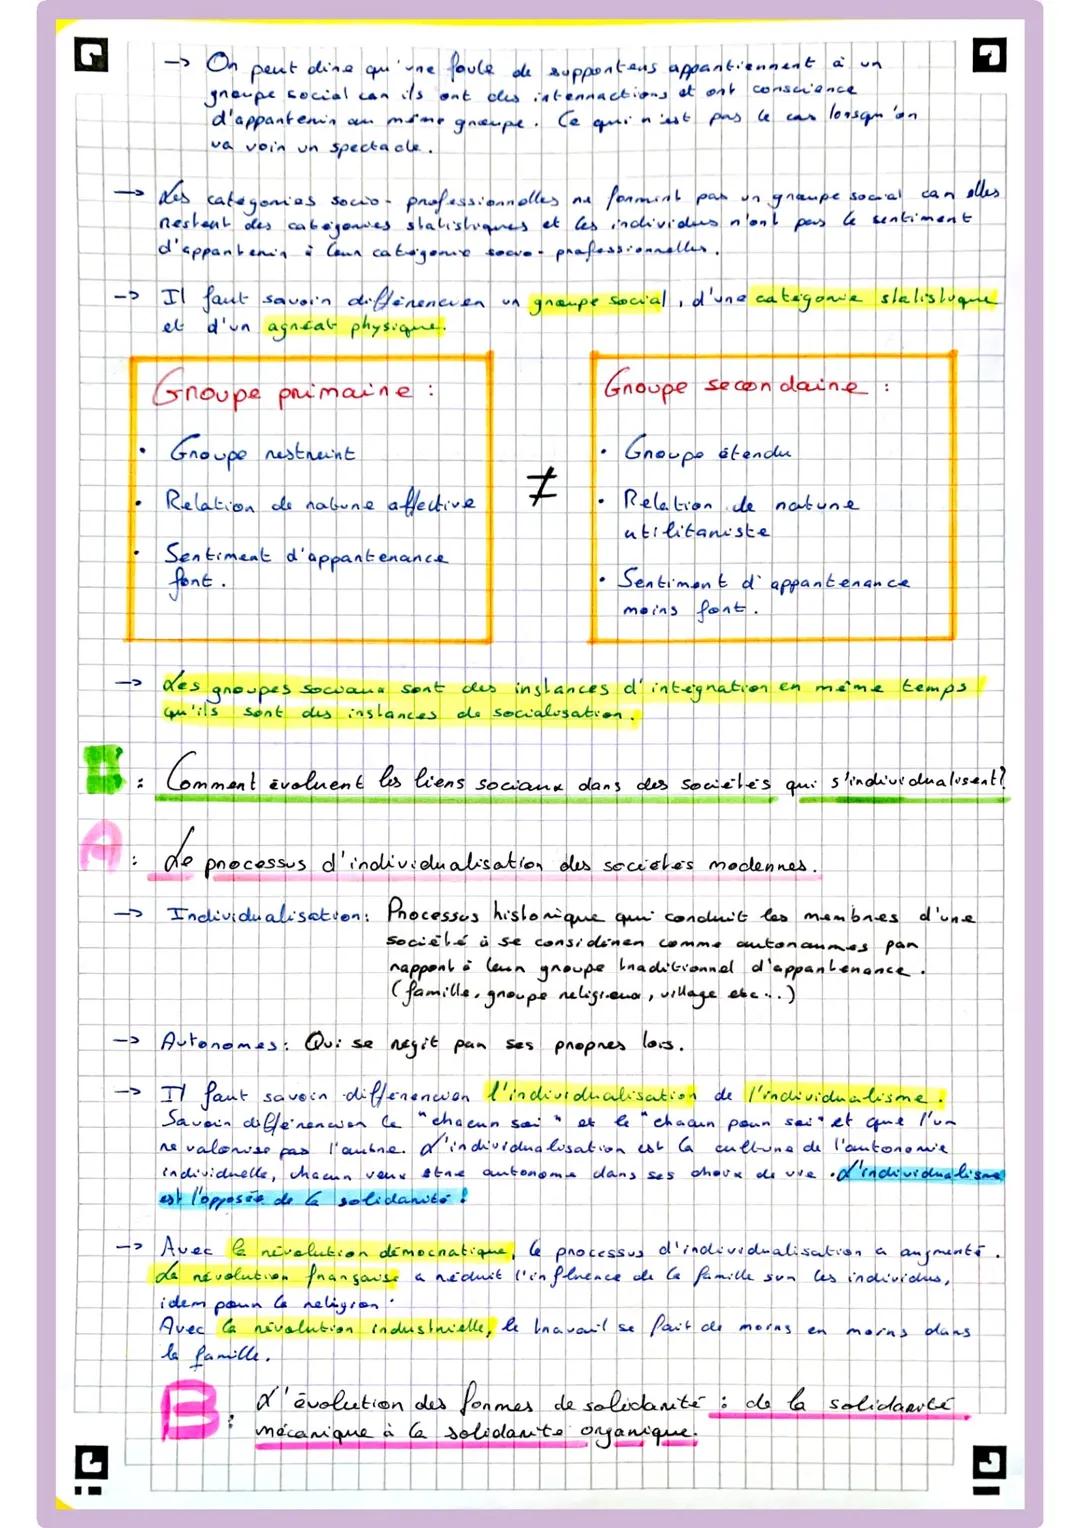 → On peut dire qu'une foule de supporters appartiennent à un
groupe social car ils ont des internactions et ont conscience
d'appartenir au même groupe. Ce qui n'est pas le cas lorsqu'on
va voir un spectacle.
→ Les catégories socio-professionnelles ne forment pas un groupe social car elles
restent des catégories statistiques et les individus n'ont pas le sentiment
d'appartenir à leur catégorie socio-professionnelles.
→ Il faut savoir différencier un groupe social, d'une catégorie statistique
et d'un agréat physique.
Groupe primaire :
• Groupe restreint
• Relation de nature affective
• Sentiment d'appartenance
fort.
≠
Groupe secondaire :
• Groupe étendu
• Relation de nature
utilitariste
• Sentiment d'appartenance
moins fort.
→ Les groupes sociaux sont des instances d'intégration en même temps
qu'ils sont des instances de socialisation.
II : Comment évoluent les liens sociaux dans des sociétés qui s'individualisent?
A : Le processus d'individualisation des sociétés modernes.
→ Individualisation: Processus historique qui conduit les membres d'une
société à se considérer comme autonomes par
rapport à leur groupe traditionnel d'appartenance.
(famille, groupe religieux, village etc...)
→ Autonomes: Qui se régit par ses propres lois.
→ Il faut savoir différencier l'individualisation de l'individualisme.
Savoir différencier le "chacun soi" et le "chacun pour soi" et que l'un
ne valorise pas l'autre. L'individualisation est la culture de l'autonomie
individuelle, chacun veux être autonome dans ses choix de vie. L'individualisme
est l'opposée de la solidarité!
→ Avec la révolution démocratique, le processus d'individualisation a augmenté.
La révolution française a réduit l'influence de la famille sur les individus,
idem pour la religion.
Avec la révolution industrielle, le travail se fait de moins en moins dans
la famille.
B : L'évolution des formes de solidarité : de la solidarité
mécanique à la solidarité organique.